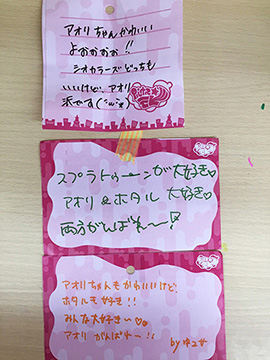 アオリちゃんかわいい
よぉぉぉぉ!!
シオカラーズどっちも
いいけど、アオリ
派です(´ω`*)
スプラトゥーンが大好き♡
アオリ&ホタル 大好き♡
両方がんばれ〜〜!
アオリちゃんもかわいいけど、
ホタルも好き!!
みんな大好き〜♡♡
アオリ がんばれー!!
by ゆユサ